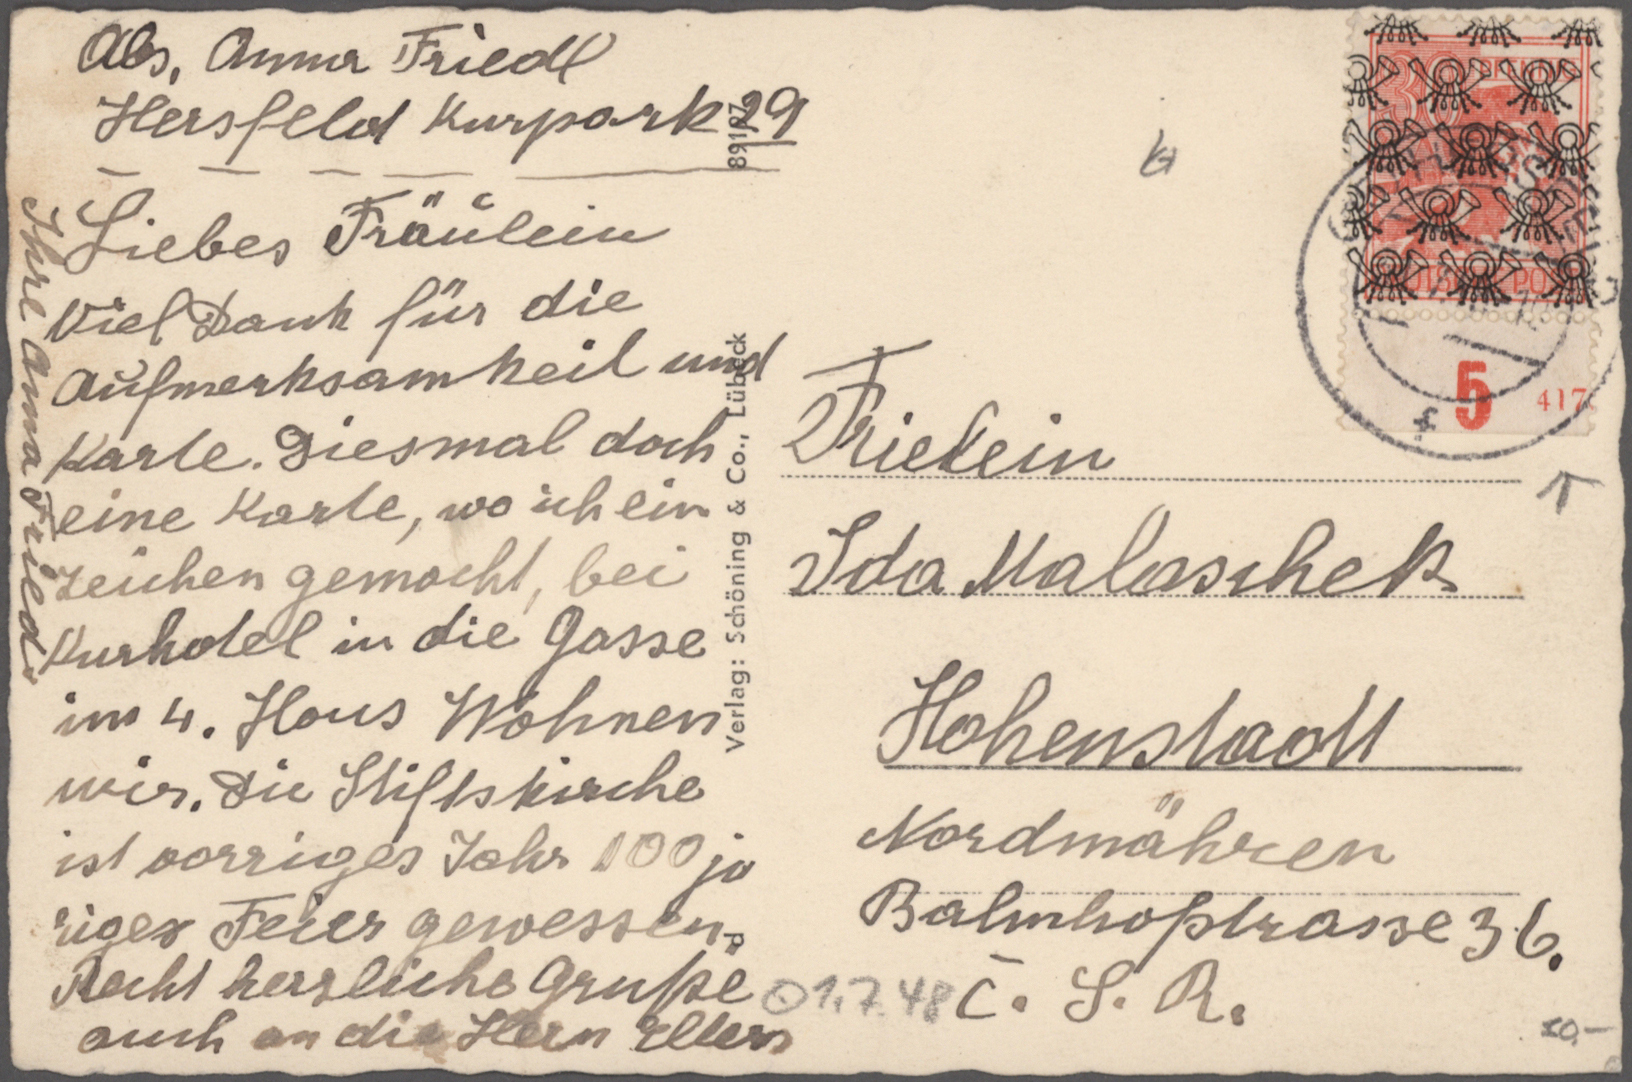 Abs. Anna Friedl
Hersfeld Kurpark 29
Liebes Fräulein
Viel Dank für die
Aufmerksamkeit und
Karte. Diesmal doch
eine Karte, wo ich ein
zeichen gemacht, bei
Kurhotel in die Gasse
im 4. Haus Wohnen
wir. Die Stiftskirche
ist vorriges Jahr 100 jä
riger Feier gewessen.
Recht herzliche Gruße
auch an die Hern Eltern
Ihre Anna Friedl
89197
Verlag: Schöning & Co., Lübeck
d
Frielein
Ida Malaschek
Hohenstadt
Nordmähren
Bahnhofstrasse 36.
Č. S. R.
01.7.48
30 PFENNIG
POST
5
417
f
20.-